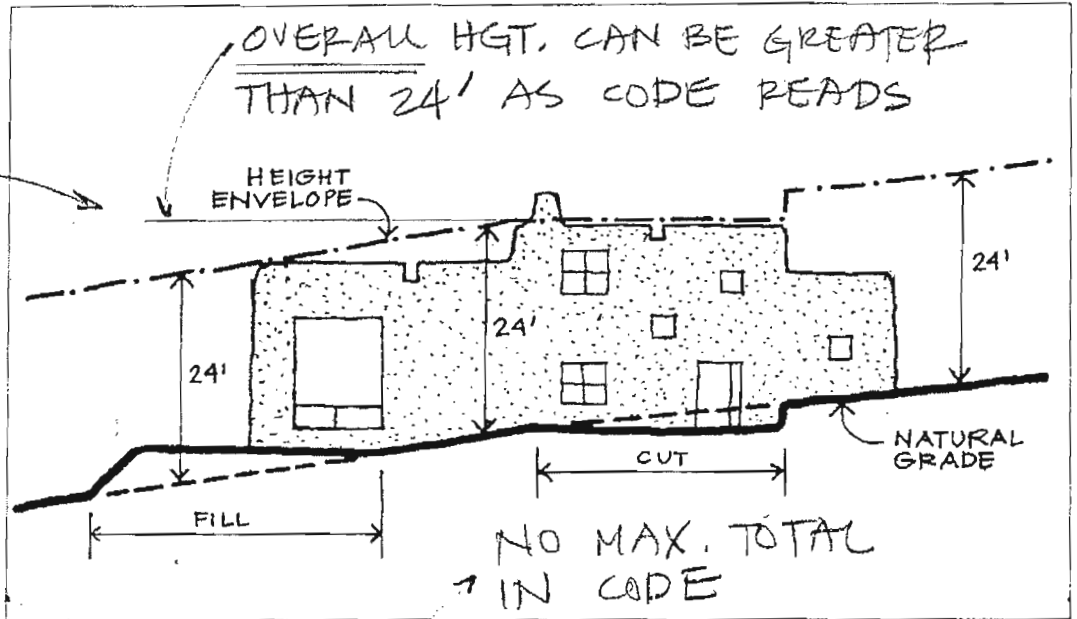 OVERALL HGT. CAN BE GREATER
THAN 24' AS CODE READS
HEIGHT
ENVELOPE
24'
24'
24'
NATURAL
GRADE
CUT
FILL
NO MAX. TOTAL
IN CODE